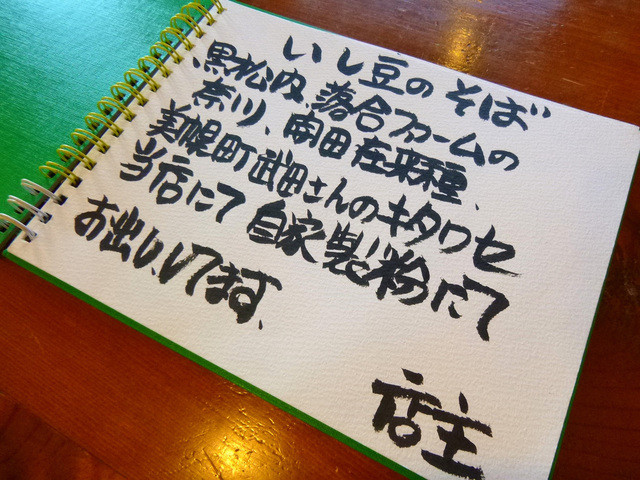 いし豆のそば
黒松内、落合ファームの
奈川、開田在来種、
美幌町武田さんのキタワセ
当店にて自家製粉にて
お出ししてます、
店主